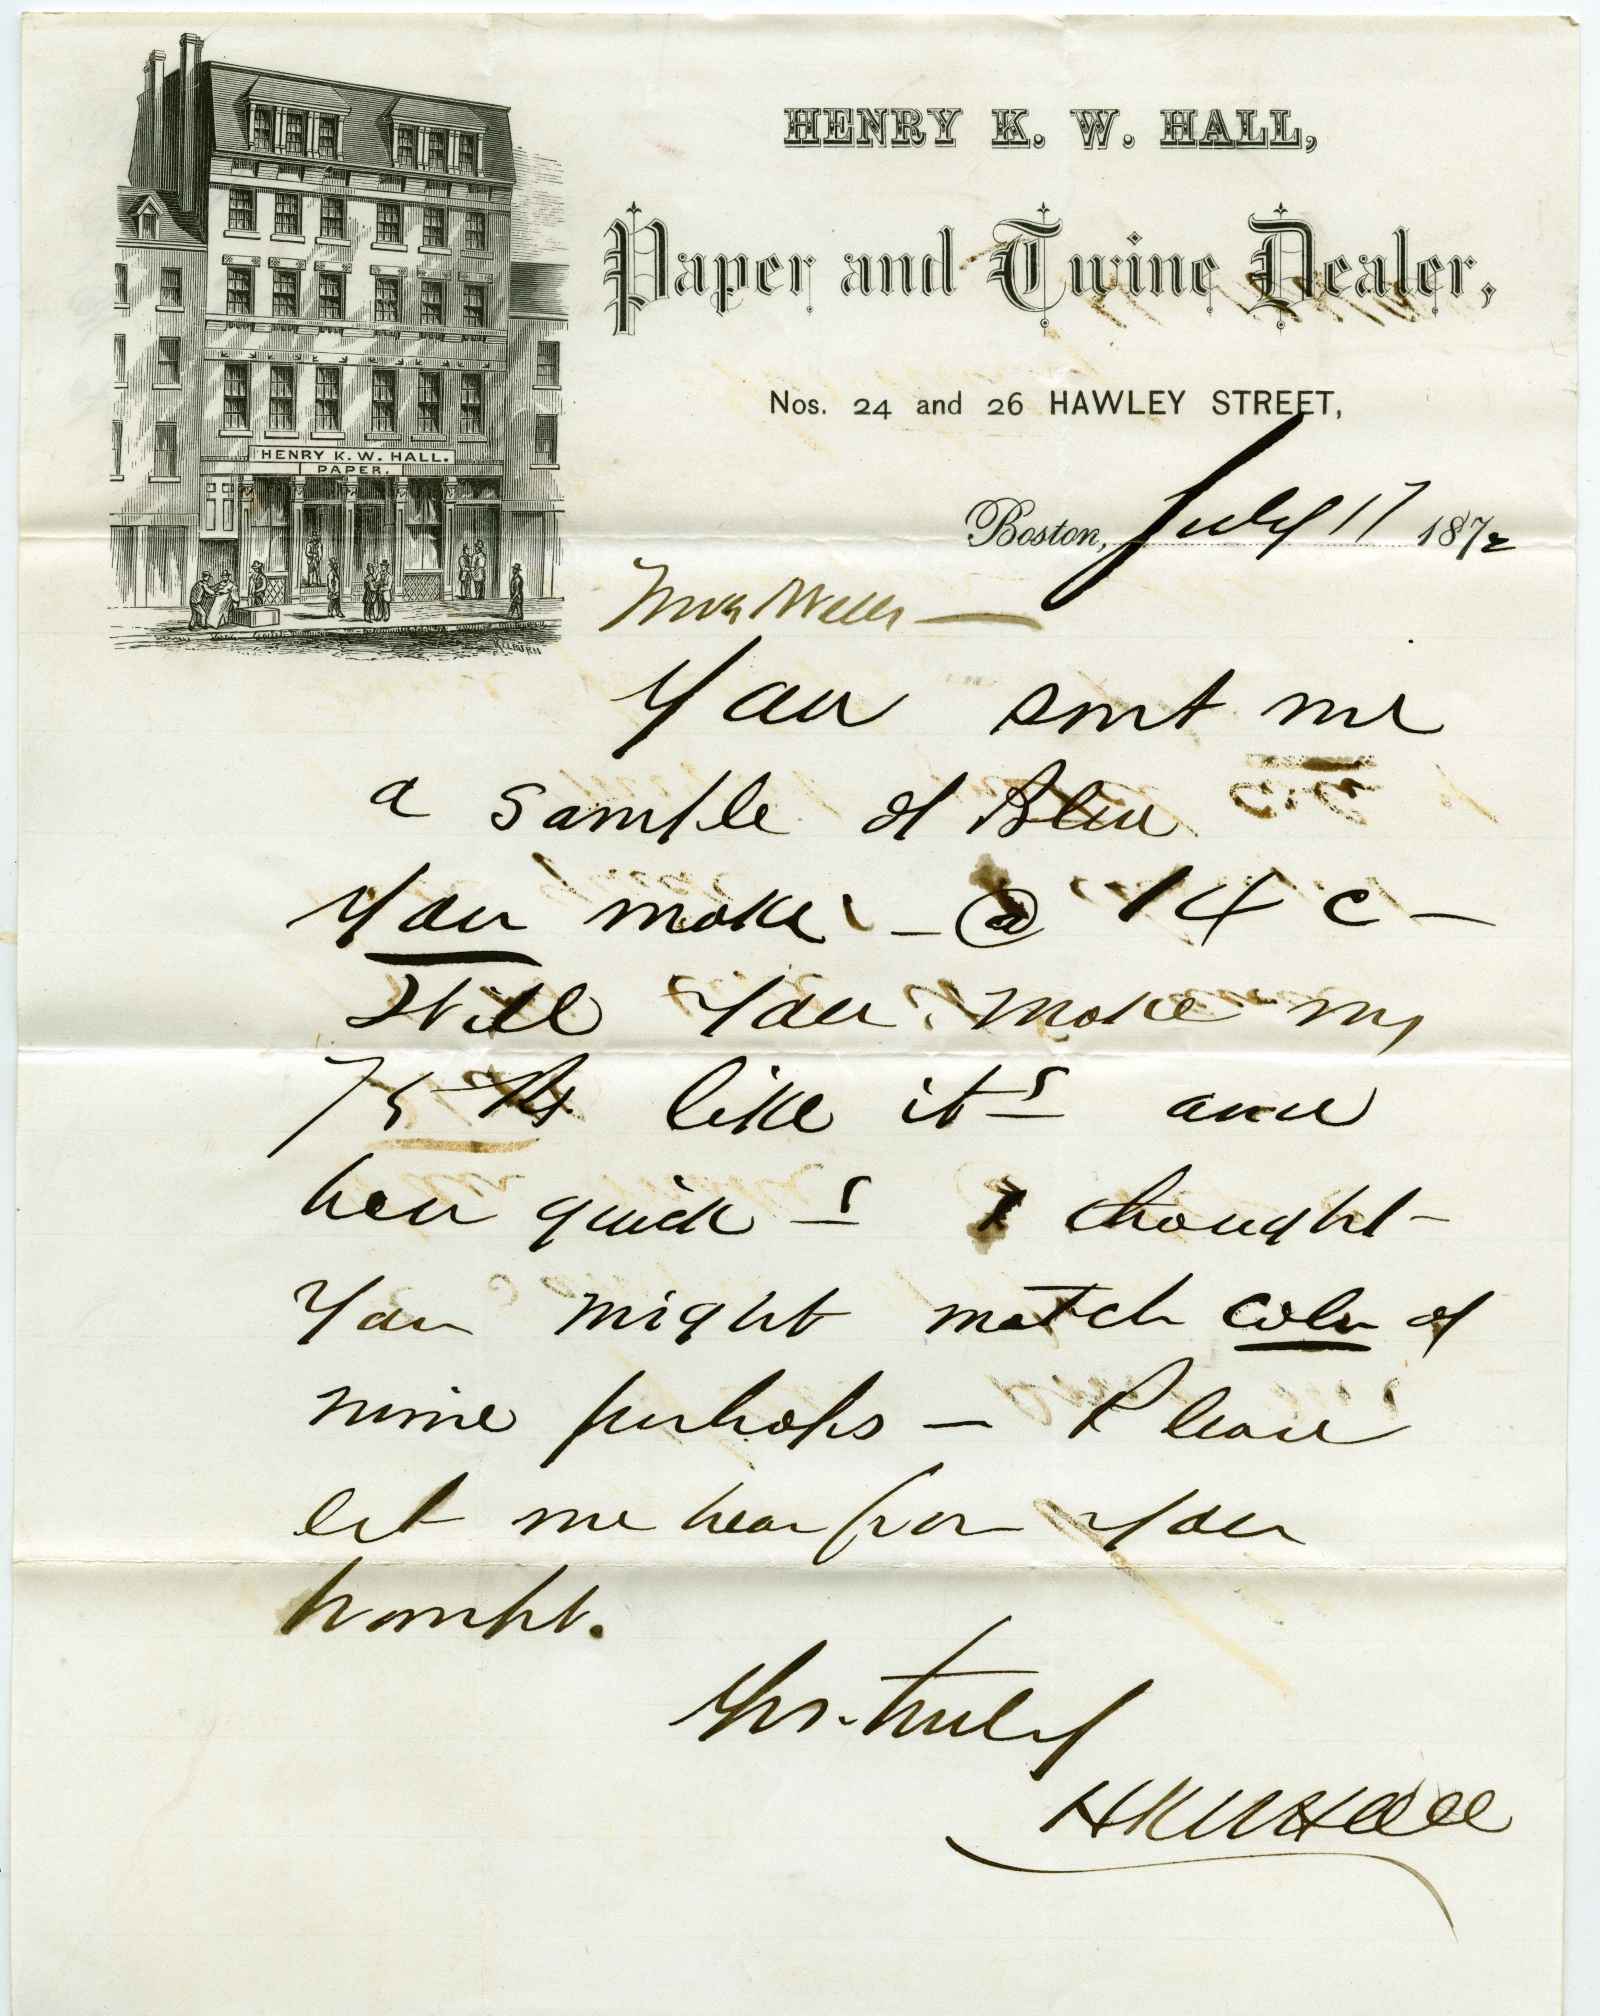 HENRY K. W. HALL,
Paper and Twine Dealer,
Nos. 24 and 26 HAWLEY STREET,
HENRY K. W. HALL.
PAPER.
KILBURN
Boston, July 17 1872
Wells —
You sent me
a sample of Blue
You make — @ 14 c —
Still You make my
75 like it and
how quick I thought —
You might match color of
mine perhaps — Please
let me hear from You
by
Yrs. truly
HKW Hall